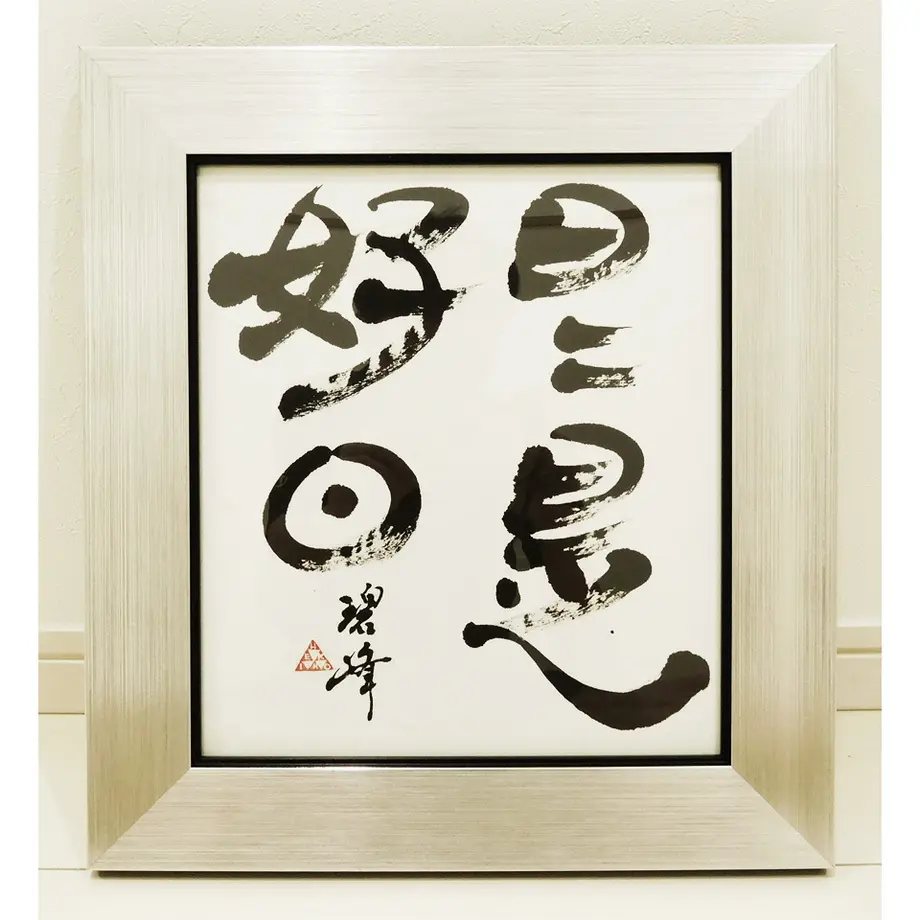 日々是
好日
碧峰